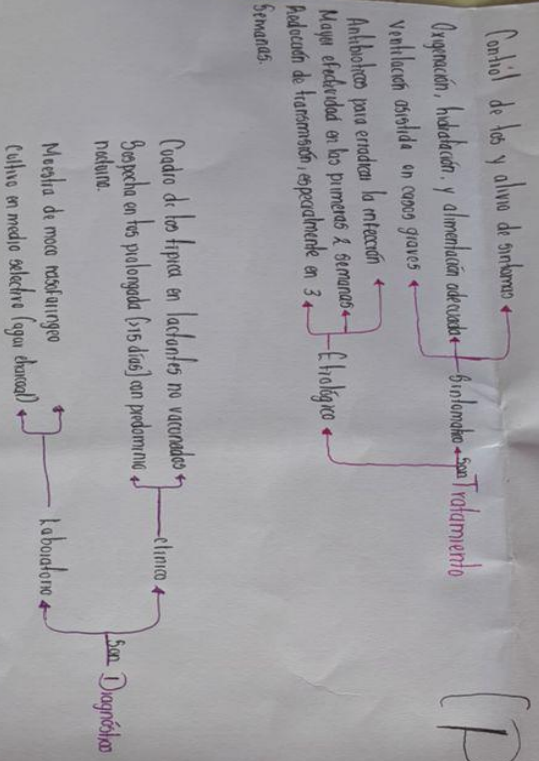 Control de tos y alivio de sintomas
Oxigenación, hidratación, y alimentación adecuada
Ventilación asistida en casos graves
Sintomatico
son
Tratamiento
Antibioticos para erradicar la infección
Mayor efectividad en las primeras 2 semanas
Reducción de transmisión, especialmente en 3
Semanas.
Etiológico
Cuadro de tos típica en lactantes no vacunados
Sospecha en tos prolongada (>15 días) con predominio
nocturno.
clínico
son
Diagnóstico
Muestra de moco nasofaríngeo
Cultivo en medio selectivo (agar charcoal)
Laboratorio